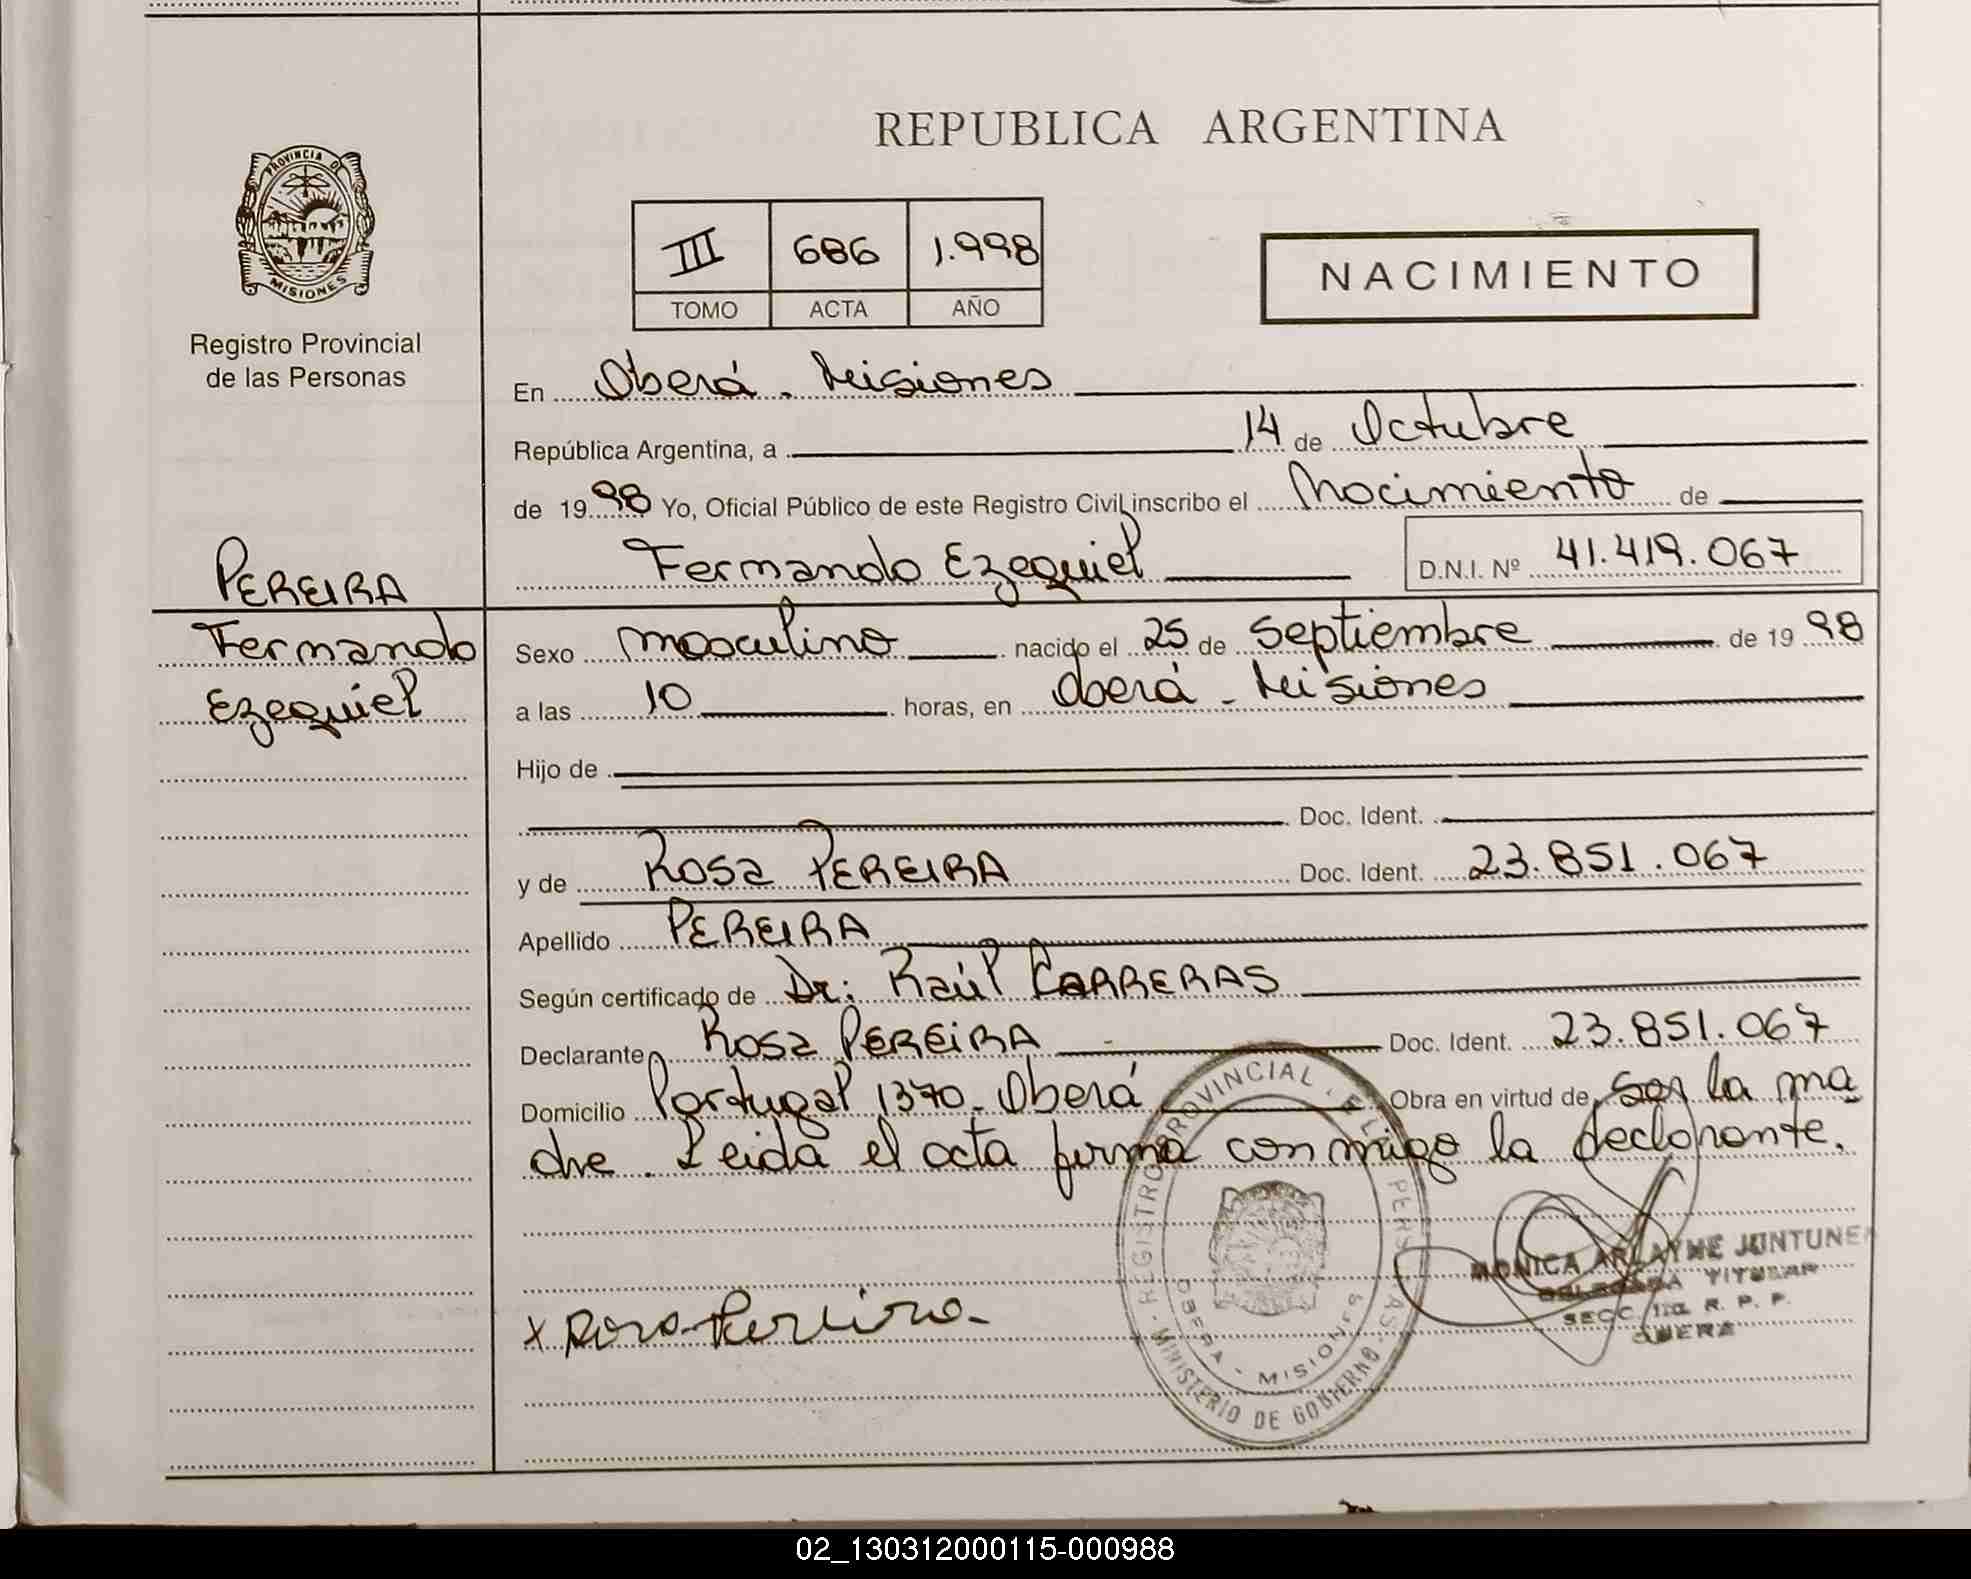 REPUBLICA ARGENTINA
PROVINCIA DE
MISIONES
Registro Provincial
de las Personas
III 686 1.998
TOMO ACTA AÑO
NACIMIENTO
En Oberá - Misiones
República Argentina, a 14 de Octubre
de 1998 Yo, Oficial Público de este Registro Civil inscribo el Nacimiento de
PEREIRA
Fernando Ezequiel D.N.I. Nº 41.419.067
Fernando
Ezequiel
Sexo masculino nacido el 25 de Septiembre de 1998
a las 10 horas, en Oberá - Misiones
Hijo de
Doc. Ident.
y de Rosa PEREIRA Doc. Ident. 23.851.067
Apellido PEREIRA
Según certificado de Dr: Raúl CARRERAS
Declarante Rosa PEREIRA Doc. Ident. 23.851.067
Domicilio Portugal 1370 - Oberá Obra en virtud de ser la ma
dre. Leida el acta firma conmigo la declarante.
x Rosa Pereira
REGISTRO PROVINCIAL PERSONAS
MINISTERIO DE GOBIERNO
OBERA - MISIONES
MONICA JUNTUNE
TITULAR
SECC. 1ra. R. P. P.
OBERA
02_130312000115-000988